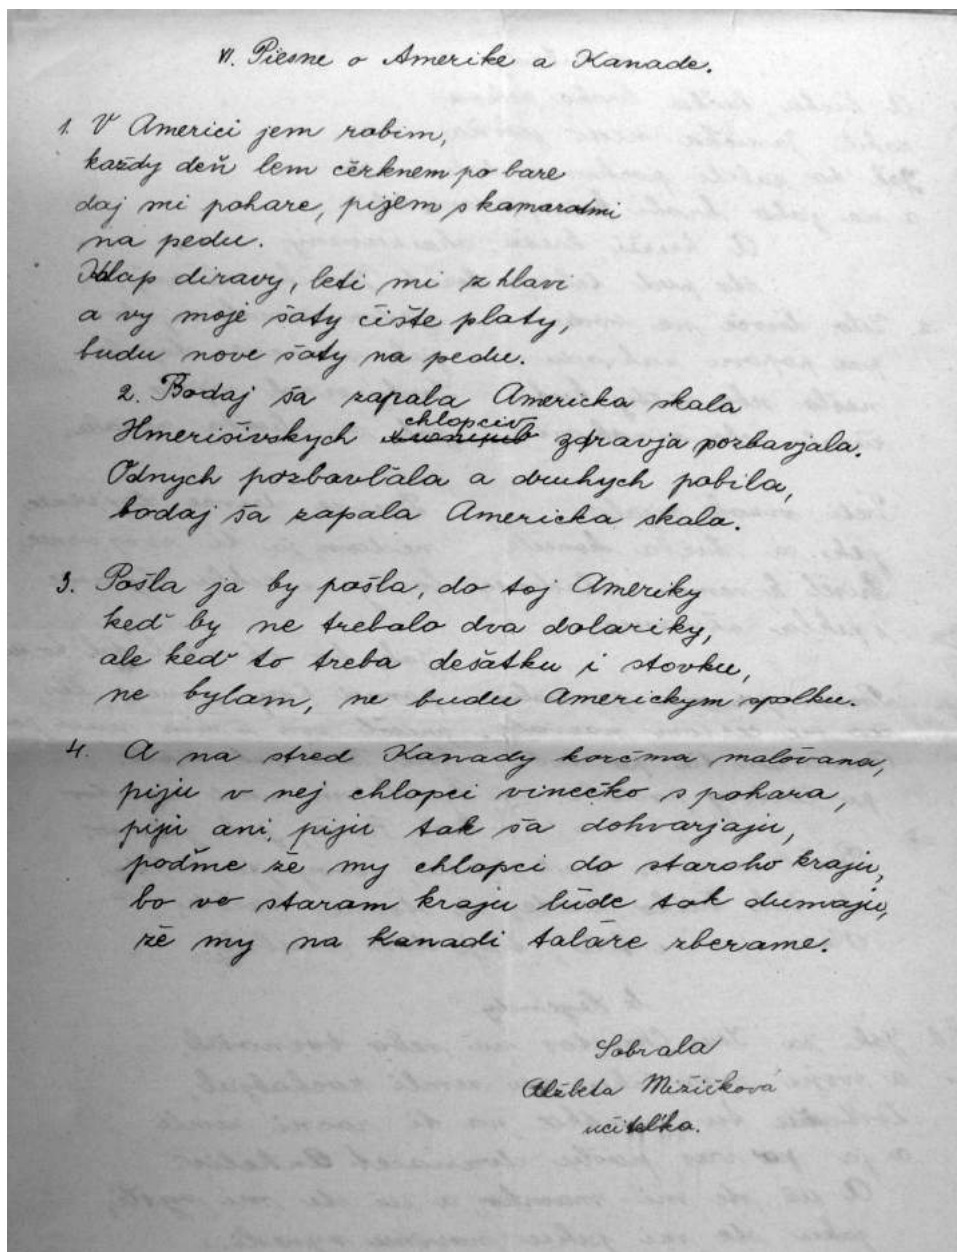 VI. Piesne o Amerike a Kanade.
1. V Americi jem robim,
každy deň lem cérknem po bare
daj mi pohare, pijem s kamaratmi
na pedu.
Klap diravy, leti mi z hlavi
a vy moje šaty čište platy,
budu nove šaty na pedu.
2. Bodaj ša zapala Americka skala
Hmerišivskych chlopciv zdravja pozbavjala.
Odnych pozbavlala a druhych pobila,
bodaj ša zapala Americka skala.
3. Pošla ja by pošla, do toj Ameriky
keď by ne trebalo dva dolariky,
ale keď to treba dešatku i stovku,
ne bylam, ne budu Americkym spolku.
4. A na stred Kanady korčma malóvana,
piju v nej chlopci vinečko s pohara,
piju ani, piju tak ša dohvarjaju,
poďme že my chlopci do staroho kraju,
bo vo staram kraju lúde tak dumaju,
že my na Kanadi taláre zberame.
Sobrala
Alžbeta Mižičková
učiteľka.